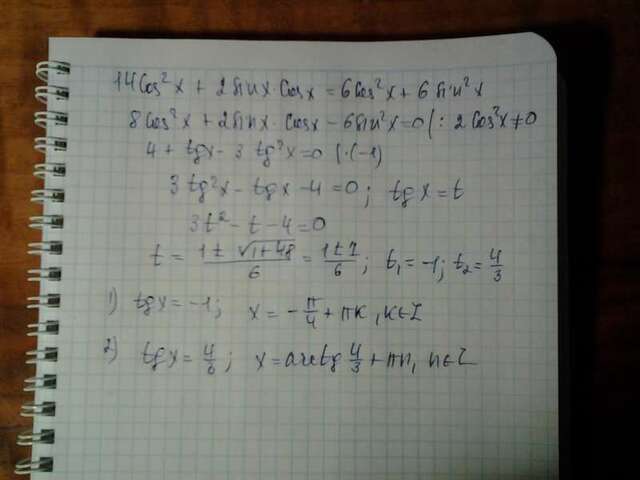 14cos²x + 2sinx·cosx = 6cos²x + 6sin²x
8cos²x + 2sinx·cosx - 6sin²x = 0 (: 2cos²x ≠ 0
4 + tgx - 3tg²x = 0 (·(-1)
3tg²x - tgx - 4 = 0; tgx = t
3t² - t - 4 = 0
t = (1 ± √(1+48))/6 = (1 ± 7)/6; t₁ = -1; t₂ = 4/3
1) tgx = -1; x = -π/4 + πk, k∈Z
2) tgx = 4/3; x = arctg 4/3 + πn, n∈Z